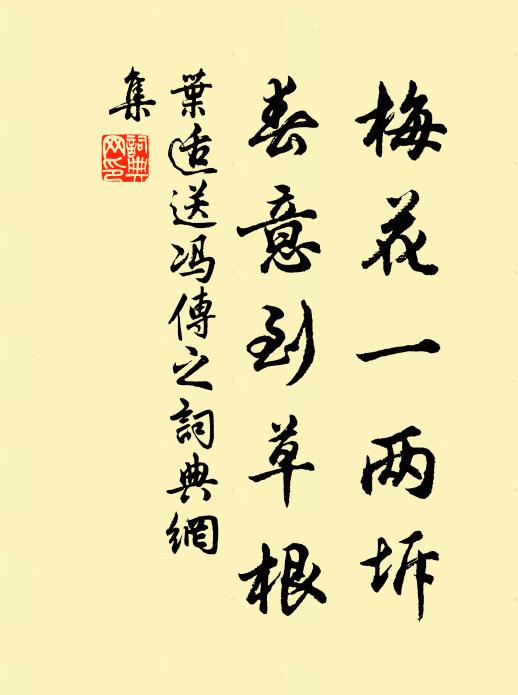 梅花一两坼
春意到草根
葉适送冯傳之詞典網
集
詞典
网印